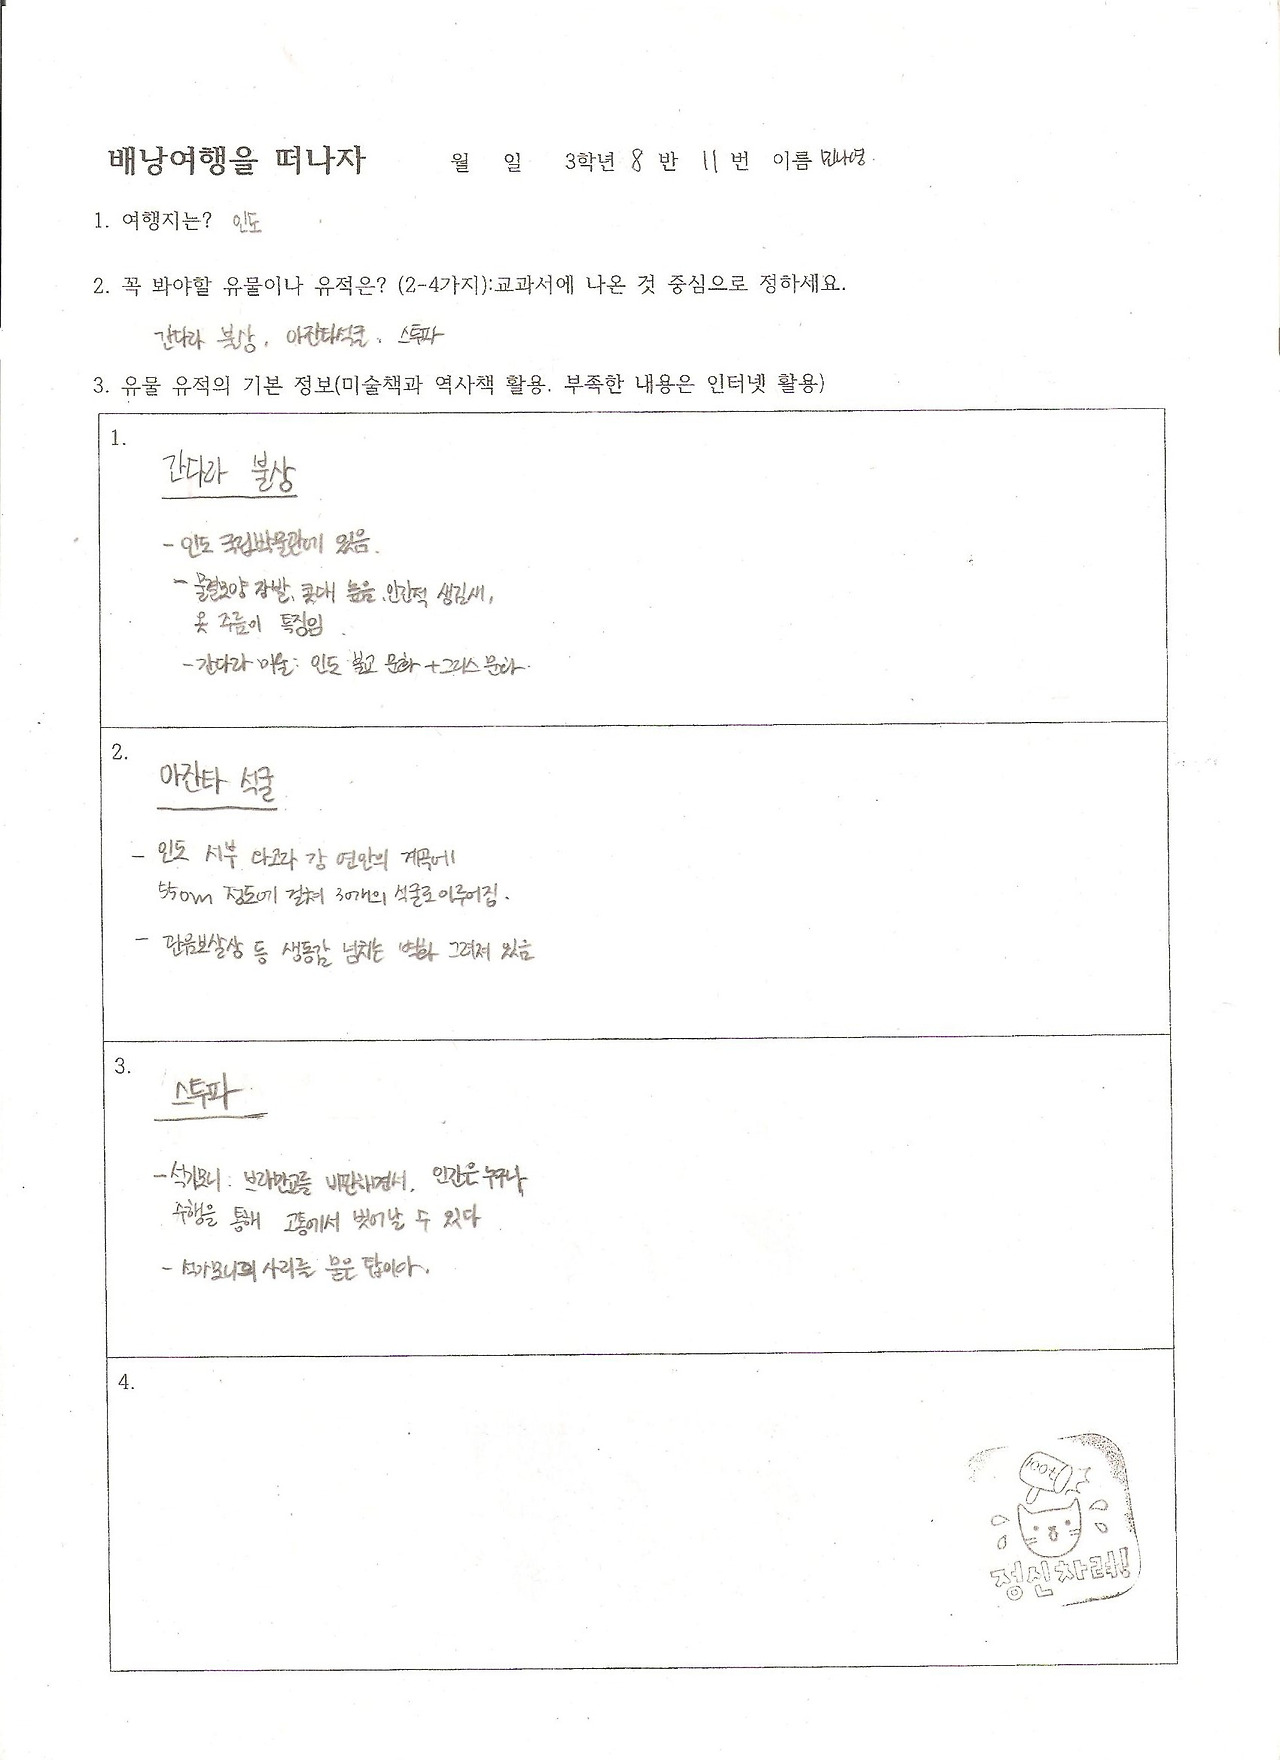 배낭여행을 떠나자 월 일 3학년 8 반 11 번 이름 민나영
1. 여행지는? 인도
2. 꼭 봐야할 유물이나 유적은? (2-4가지):교과서에 나온 것 중심으로 정하세요.
간다라 불상, 아잔타석굴, 스투파
3. 유물 유적의 기본 정보(미술책과 역사책 활용. 부족한 내용은 인터넷 활용)
1.
간다라 불상
- 인도 국립박물관에 있음.
- 물결모양 장발, 콧대 높음, 인간적 생김새,
옷 주름이 특징임.
- 간다라 미술: 인도 불교 문화 + 그리스 문화.
2.
아잔타 석굴
- 인도 서부 와고라 강 연안의 계곡에
550m 정도에 걸쳐 30개의 석굴로 이루어짐.
- 관음보살상 등 생동감 넘치는 벽화 그려져 있음
3.
스투파
- 석가모니: 브라만교를 비판하면서, 인간은 누구나
수행을 통해 고통에서 벗어날 수 있다
- 석가모니의 사리를 묻은 탑이다.
4.
100t
정신차려!